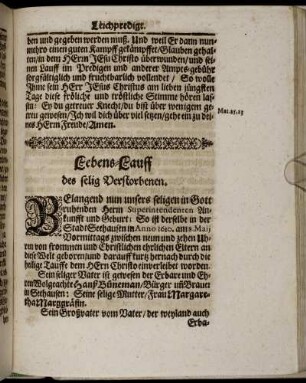 Leichpredigt.
ben und gegeben werden muß. Und weil Er dann nun
mehro einen guten Kampff gekämpffet/ Glauben gehal-
ten/ in dem HErrn JEsu Christo überwunden/ und sei-
nen Lauff im Predigen und anderer Ampts-gebühr
sorgfältiglich und fruchtbarlich vollendet/ So wolle
Ihme sein HErr JEsus Christus am lieben jüngsten
Tage diese fröliche und tröstliche Stimme hören las-
sen: Ey du getreuer Knecht/ du bist über wenigem ge-
treu gewesen/ Ich wil dich über viel setzen/ gehe ein zu dei-
nes HErrn Freude/ Amen.
Mat. 25. 23
Lebens-Lauff
des selig Verstorbenen.
BElangend nun unsers seligen in Gott
ruhenden Herrn Superintendenten An-
kunfft und Geburt: So ist derselbe in der
Stadt Seehausen in Anno 1610. am 2. Maij
Vormittags zwischen neun und zehen Uh-
ren von frommen und Christlichen ehrlichen Eltern an
diese Welt geboren/ und darauff kurtz hernach durch die
heilige Tauffe dem HErrn Christo einverleibet worden.
Sein seliger Vater ist gewesen der Erbare und Eh-
renWolgeachte Hanß Büneman/ Bürger uñ Brauer
in Seehausen: Seine selige Mutter/ Frau Margare-
tha Marggräfin.
Sein Großvater vom Vater/ der weyland auch
Erba-